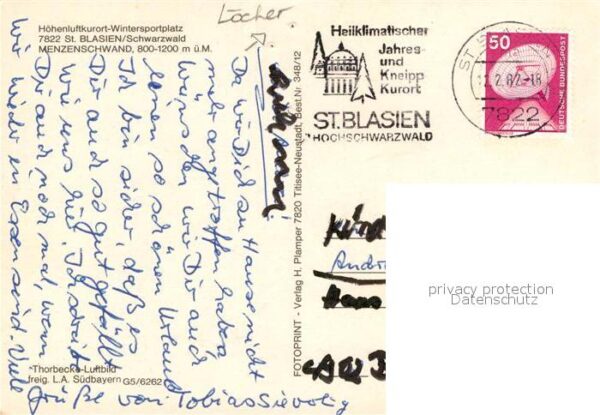 Löcher
Höhenluftkurort-Wintersportplatz
7822 St. BLASIEN/Schwarzwald
MENZENSCHWAND, 800-1200 m ü.M.
Heilklimatischer
Jahres-
und
Kneipp
Kurort
ST. BLASIEN
HOCHSCHWARZWALD
50
DEUTSCHE BUNDESPOST
2.82-18
7822
Da wir Dich zu Hause nicht
mehr angetroffen haben
wünschen wir Dir auch
einen so schönen Urlaub
Ich bin sicher, daß es
Dir auch so gut gefällt
wie uns hier. Ich schreibe
Dir auch noch mal, wenn
wir wieder in Essen sind. Viele
Grüße von Tobias
FOTOPRINT - Verlag H. Plamper 7820 Titisee-Neustadt, Best.Nr. 348/12
Hans
privacy protection
Datenschutz
Thorbecke-Luftbild
freig. L.A. Südbayern G5/6262